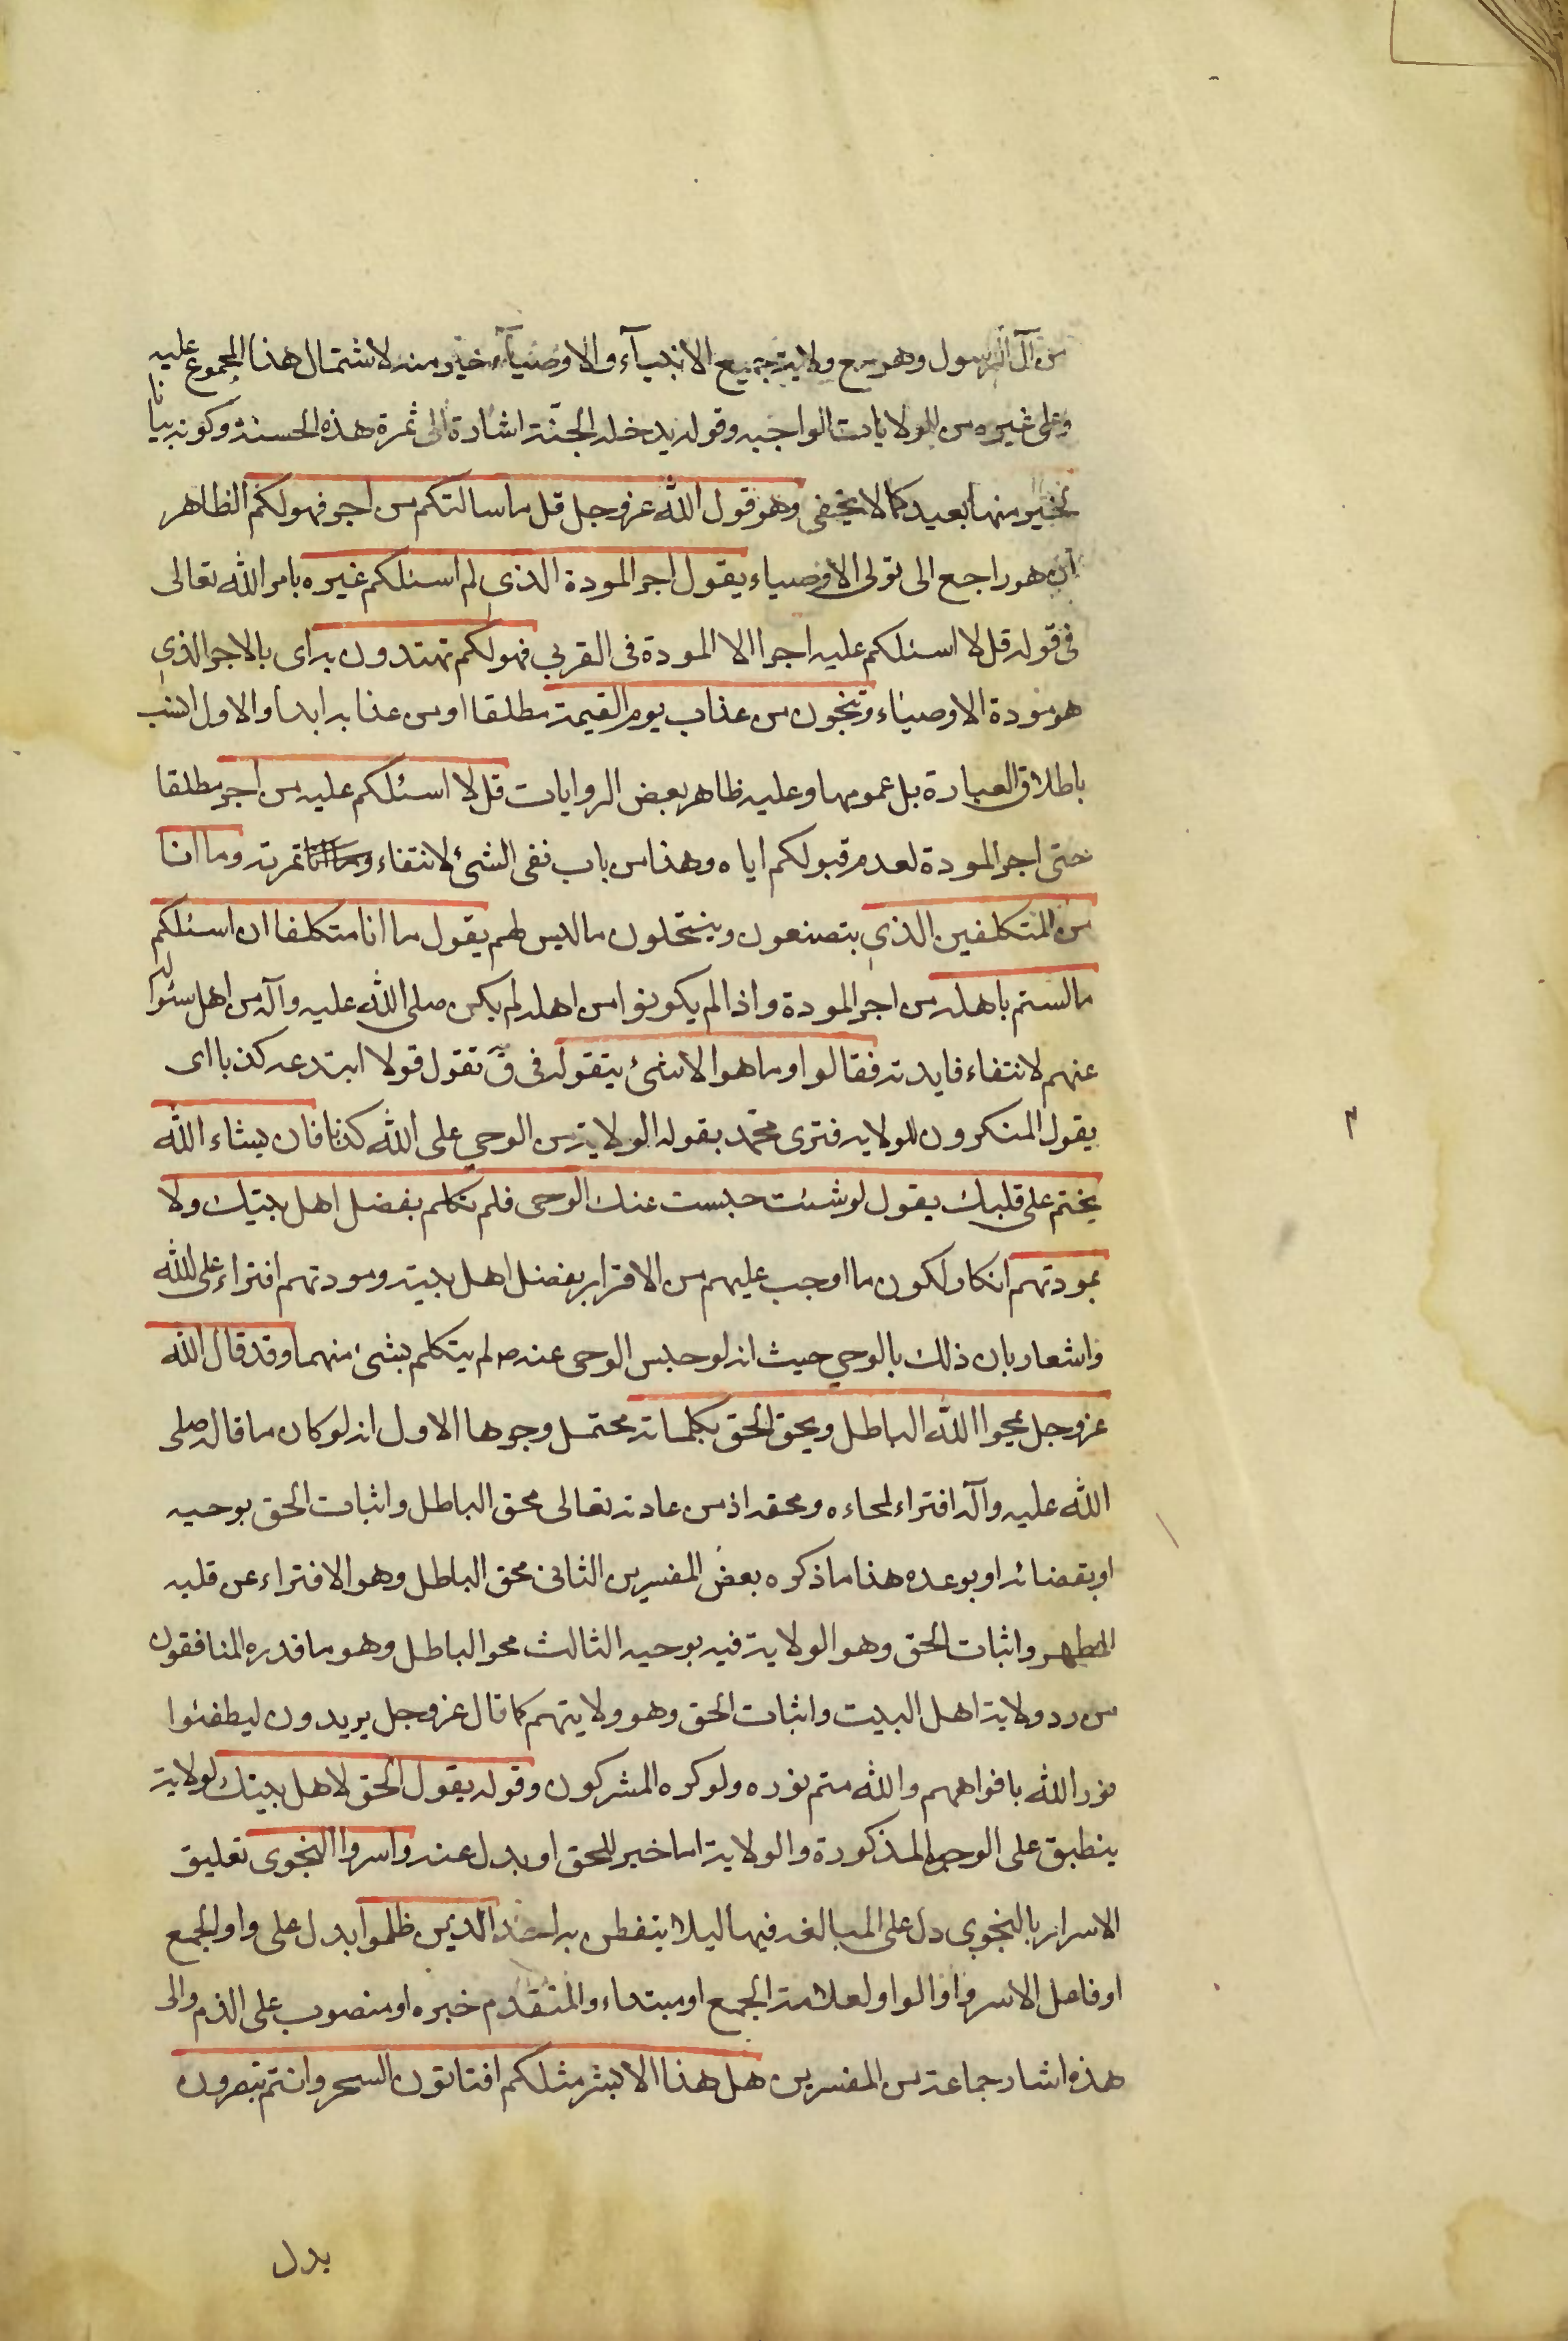 من آل الرسول وهو مع ولاية جميع الانبيآء والاوصيآء خير منه لاشتمال هذا المجموع عليه
وعلى غيره من الولايات الواجبه وقوله يدخله الجنّة اشارة الى ثمرة هذه الحسنة وكونه بيانا
لخير منها بعيد كما لا يخفى وهو قول الله عزوجل قل ما سالتكم من اجر فهو لكم الظاهر
ان هو راجع الى تولى الاوصياء يقول اجر المودة الذي لم اسئلكم غيره بامر الله تعالى
فى قوله قل لا اسئلكم عليه اجرا الا المودة فى القربي فهو لكم تهتدون به اى بالاجر الذي
هو مودة الاوصياء وتنجون من عذاب يوم القيمة مطلقا او من عذابه ابدا والاول انسب
باطلاق العبارة بل عمومها وعليه ظاهر بعض الروايات قل لا اسئلكم عليه من اجر مطلقا
حتى اجر المودة لعدم قبولكم اياه وهذا من باب نفى الشئ لانتفاء ثمرته وما انا
من المتكلفين الذي يتصنعون وينتحلون ما ليس لهم يقول ما انا متكلفا ان اسئلكم
ما لستم باهله من اجر المودة واذا لم يكونوا من اهله لم يكن صلى الله عليه وآله من اهل سئواله
عنهم لانتفاء فايدته فقالوا وما هو الا شئ يتقوله فى ق تقول قولا ابتدعه كذبا اى
يقول المنكرون للولايه فترى محمّد بقوله الولاية من الوحي على الله كذبا فان يشاء الله
يختم على قلبك يقول لو شئت حبست عنك الوحى فلم تكلم بفضل اهل بيتك ولا
بمودتهم انكار لكون ما اوجب عليهم من الاقرار بفضل اهل بيته ومودتهم افتراء على الله
واشعار بان ذلك بالوحي حيث انه لو حبس الوحى عنه لم يتكلم بشئ منهما وقد قال الله
عزوجل يمحوا الله الباطل ويحق الحق بكلماته محتمل وجوها الاول انه لو كان ما قاله صلى
الله عليه وآله افتراء لمحاءه ومحقه اذ من عادته تعالى محق الباطل واثبات الحق بوحيه
او بقضائه او بوعده هذا ما ذكره بعض المفسرين الثانى محق الباطل وهو الافتراء عن قلبه
المطهر واثبات الحق وهو الولاية فيه بوحيه الثالث محو الباطل وهو ما قدره المنافقون
من رد ولاية اهل البيت واثبات الحق وهو ولايتهم كما قال عزوجل يريدون ليطفئوا
نور الله بافواههم والله متم نوره ولو كره المشركون وقوله يقول الحق لاهل بيتك لولاية
ينطبق على الوجوه المذكورة والولاية اما خبر للحق او بدل عنه واسروا النجوى تعليق
الاسرار بالنجوى دل على المبالغه فيها ليلا يتفطن به احد الذين ظلموا بدل على واو الجمع
او فاعل الاسروا والواو لعلامة الجمع او مبتداء والمتقدم خبره او منصوب على الذم والى
هذه اشار جماعة من المفسرين هل هذا الا بشر مثلكم افتاتون السحر وانتم تبصرون
بدل